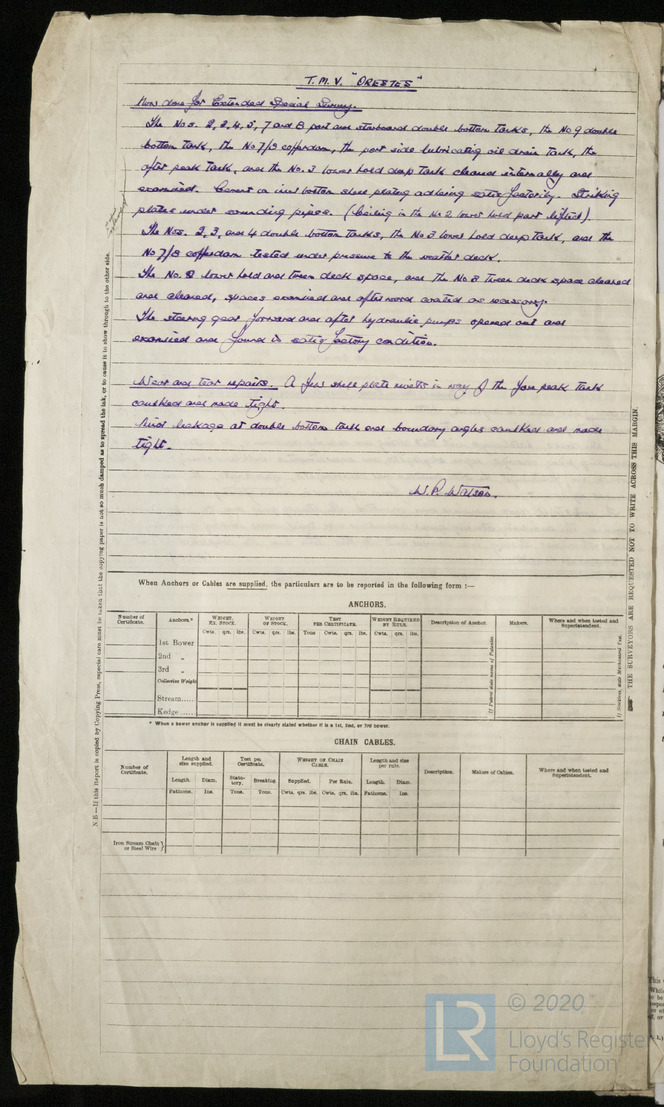 T.M.V. "ORESTES"
Now done for Extended Special Survey.
The Nos. 2, 3, 4, 5, 7 and 8 port and starboard double bottom tanks, the No 9 double
bottom tank, the No 7/8 cofferdam, the port side lubricating oil drain tank, the
after peak tank, and the No. 3 lower hold deep tank cleaned internally and
examined. Cement on inner bottom shell plating adhering satisfactorily. Striking
plates under sounding pipes. (Ceiling in the No 2 lower hold part lifted).
The Nos. 2, 3, and 4 double bottom tanks, the No 3 lower hold deep tank, and the
No 7/8 cofferdam tested under pressure to the weather deck.
The No. 2 lower hold and tween deck space, and the No 3 Tween deck space cleaned
and cleared, spaces examined and afterward coated as necessary.
The steering gear forward and after hydraulic pumps opened out and
examined and found in satisfactory condition.
Wear and tear repairs. A few shell plate rivets in way of the fore peak tank
caulked and made tight.
Minor leakage at double bottom tank end boundary angles caulked and made
tight.
W. P. Wilson.
When Anchors or Cables are supplied, the particulars are to be reported in the following form :—
ANCHORS.
Number of Certificate. Anchors.* WEIGHT, EX. STOCK. WEIGHT OF STOCK. TEST PER CERTIFICATE. WEIGHT REQUIRED BY RULE. Description of Anchor. Makers. Where and when tested and Superintendent.
Cwts. qrs. lbs. Cwts. qrs. lbs. Tons Cwts. qrs. lbs. Cwts. qrs. lbs.
1st Bower
2nd „
3rd „
Collective Weight
Stream......
Kedge......
If Patent state name of Patentee
* When a bower anchor is supplied it must be clearly stated whether it is a 1st, 2nd, or 3rd bower.
CHAIN CABLES.
Number of Certificate. Length and size supplied. Test per Certificate. WEIGHT OF CHAIN CABLE. Length and size per rule. Description. Makers of Cables. Where and when tested and Superintendent.
Length. Diam. Statutory. Breaking Supplied. Per Rule. Length. Diam.
Fathoms. Ins. Tons. Tons. Cwts. qrs. lbs. Cwts. qrs. lbs. Fathoms. Ins.
Iron Stream Chain
or Steel Wire
N.B.—If this Report is copied by Copying Press, especial care must be taken that the copying paper is not so much damped as to spread the ink, or to cause it to show through to the other side.
THE SURVEYORS ARE REQUESTED NOT TO WRITE ACROSS THIS MARGIN.
LR
© 2020
Lloyd's Register
Foundation